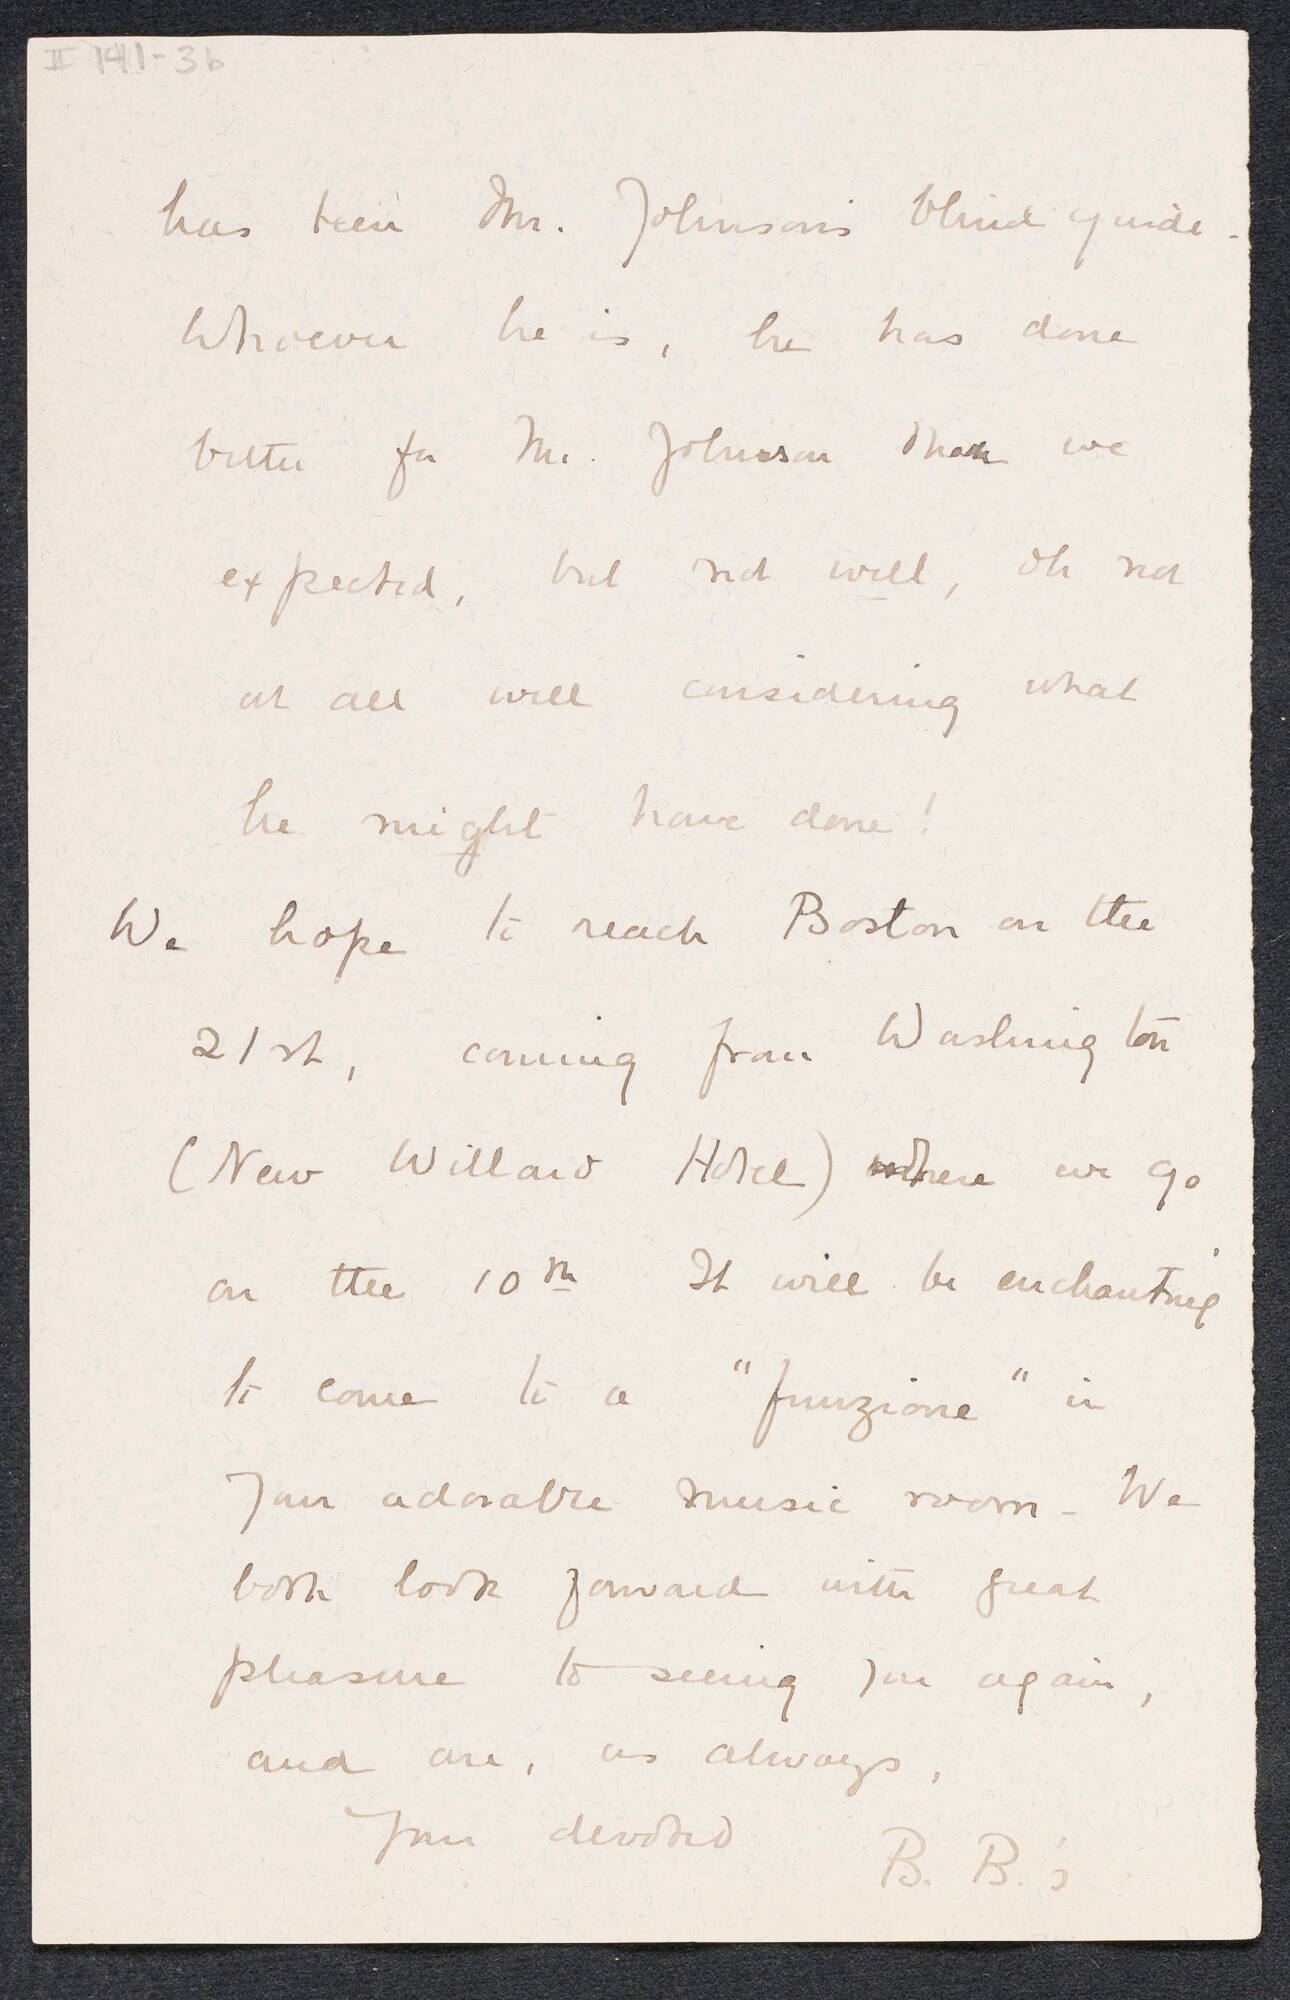 II 141-3b
has been Mr. Johnson's blind guide -
Whoever he is, he has done
better for Mr. Johnson than we
expected, but not well, oh not
at all well considering what
he might have done!
We hope to reach Boston on the
21st, coming from Washington
(New Willard Hotel) where we go
on the 10th It will be enchanting
to come to a "funzione" in
your adorable music room - We
both look forward with great
pleasure to seeing you again,
and are, as always,
Your devoted B. B.'s